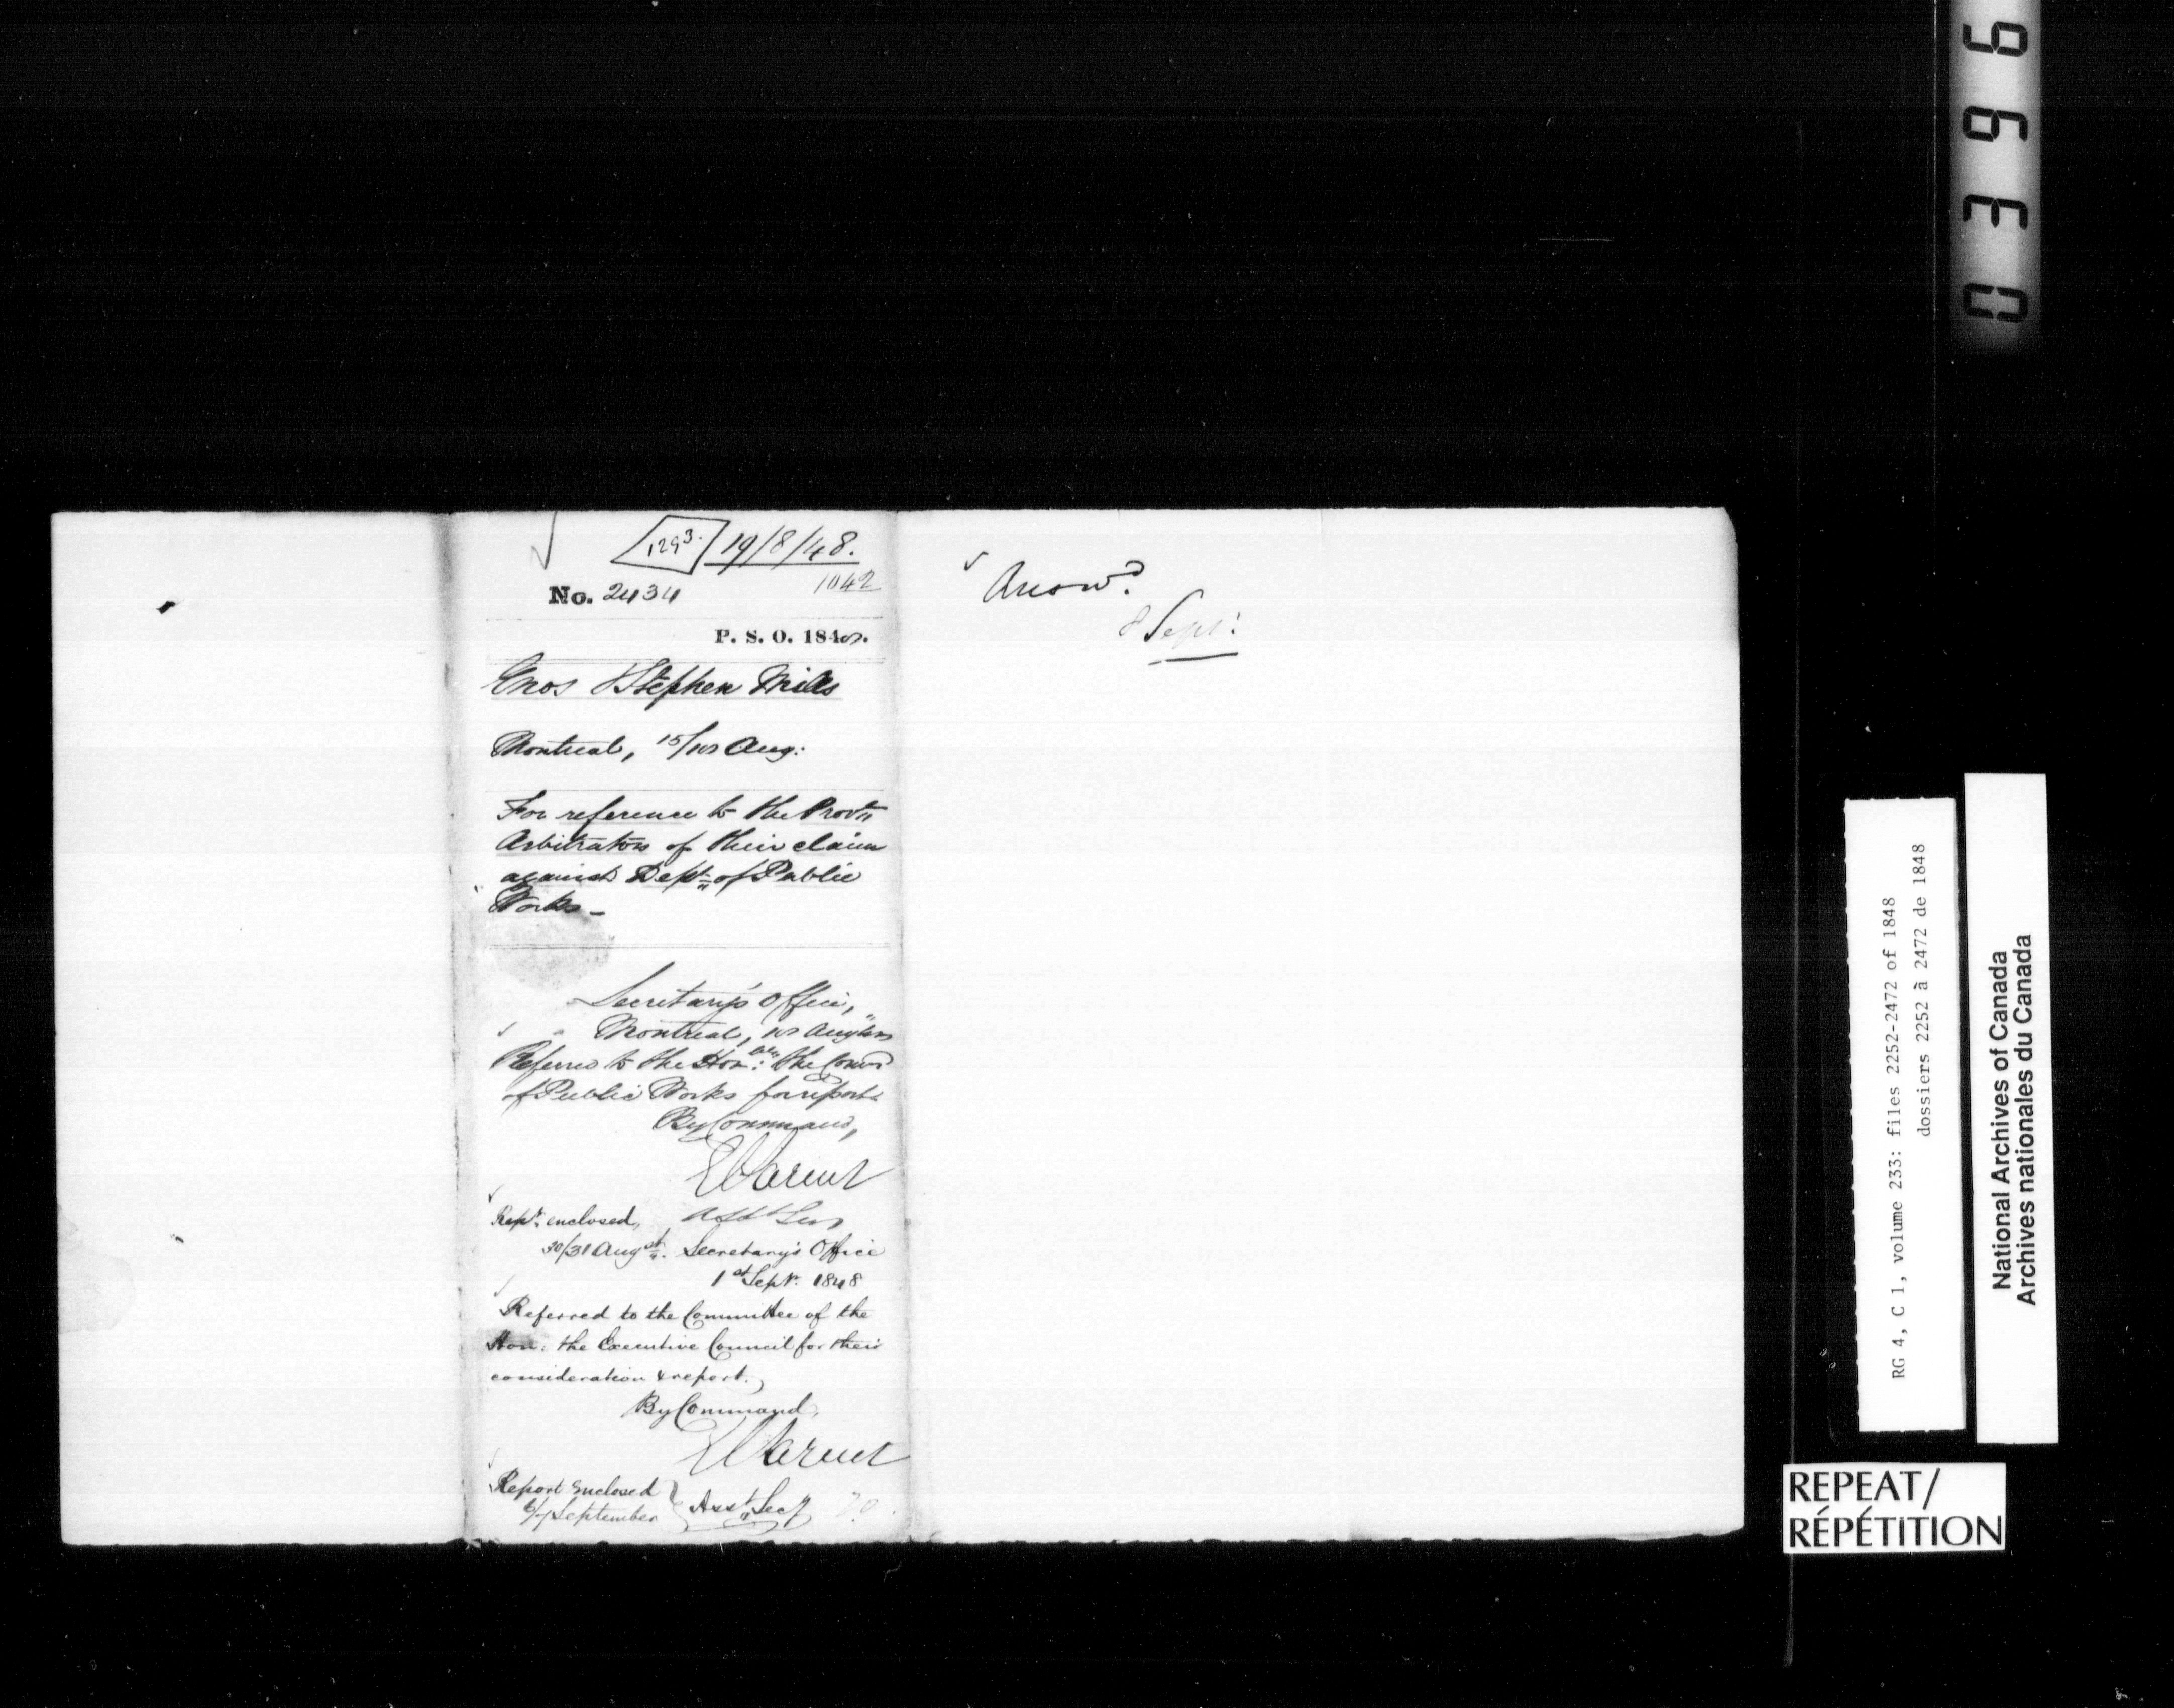 1293. 19/8/48.
1042
No. 2434
P. S. O. 1848.
Enos & Stephen Mills
Montreal, 15/18 Aug:
For reference to the Provl
Arbitrators of their claim
against Dept. of Public
Works –
Secretary's Office,
Montreal, 18 Aug
Referred to the Honble: the Comrs
of Public Works for report.
By Command,
E Parent
Asst Secy
Rept. enclosed,
30/31 Augst. Secretary's Office
1st Sept. 1848
Referred to the Committee of the
Hon: the Executive Council for their
consideration & report.
By Command,
E Parent
Report Enclosed
6/7 September
Asst Secy
Answd.
8 Sept:
0396
RG 4, C 1, volume 233: files 2252-2472 of 1848
dossiers 2252 à 2472 de 1848
National Archives of Canada
Archives nationales du Canada
REPEAT/
RÉPÉTITION